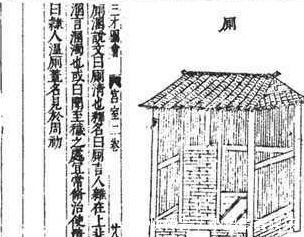 厠
三才圖會 宮室二卷
厠說文曰厠清也釋名曰厠言人雜在上非
溷言溷濁也或曰圊至穢之處宜常修治使潔
曰隸人涅厠蓋名見於周初